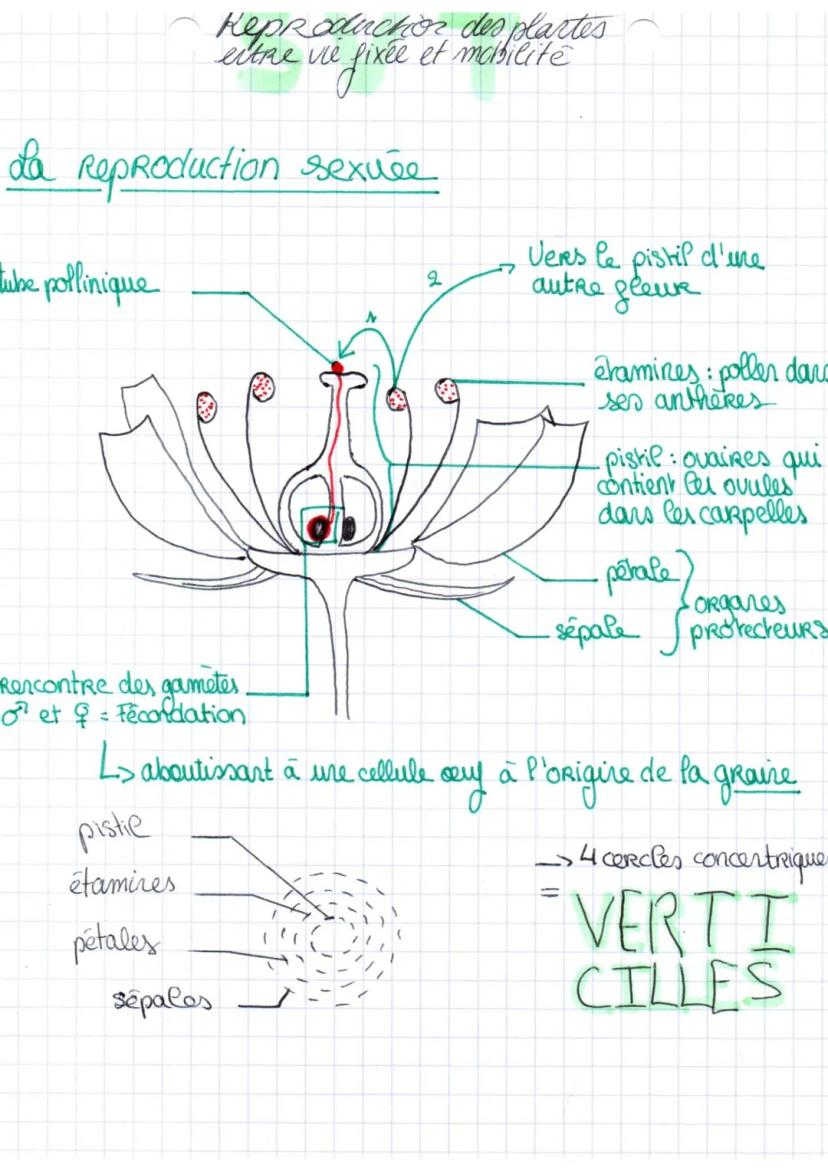 Reproduction des plantes
entre vie fixée et mobilité
SVT
La REPRODUCTION sexuée
tube pollinique
1
2
Vers le pistil d'une
autre fleur
étamines : pollen dans
ses anthères
pistil : ovaires qui
contient les ovules
dans les carpelles
pétale
sépale
organes
protecteurs
rencontre des gamètes
♂ et ♀ = Fécondation
↳ aboutissant à une cellule œuf à l'origine de la graine
pistil
étamines
pétales
sépales
→ 4 cercles concentrique
=
VERTI
CILLES